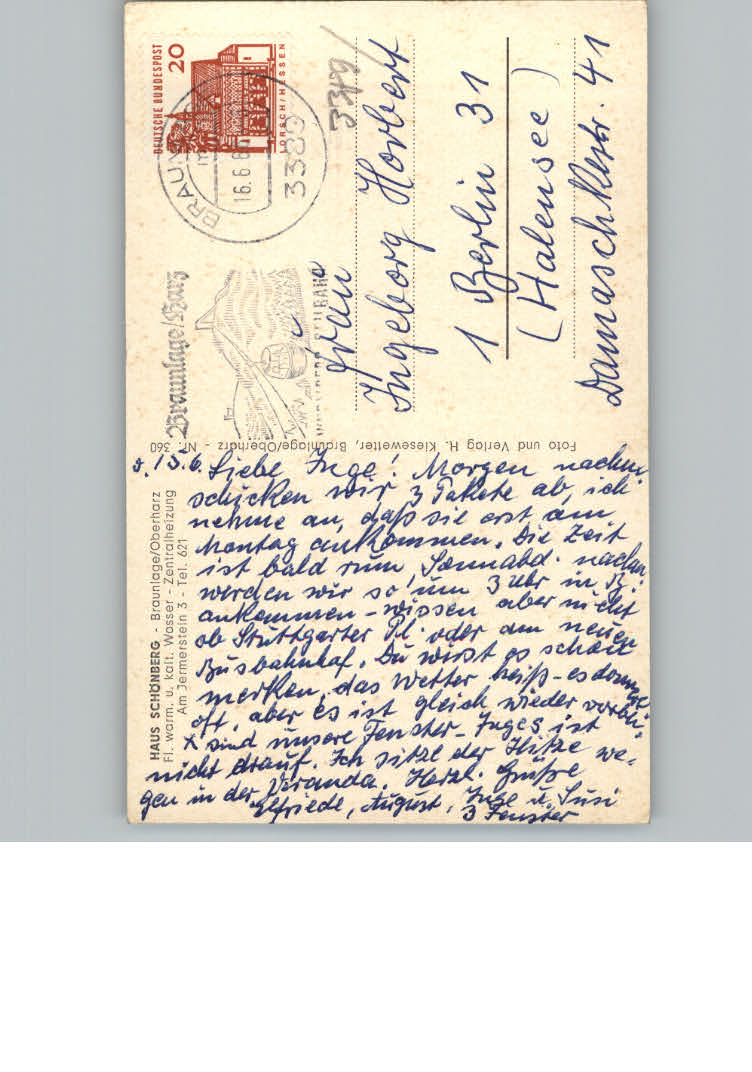 HAUS SCHÖNBERG - Braunlage/Oberharz
Fl. warm. u. kalt. Wasser - Zentralheizung
Am Jermerstein 3 - Tel. 621
d. 15.6. Liebe Inge! Morgen nachm.
schicken wir 3 Pakete ab, ich
nehme an, daß sie erst am
Montag ankommen. Die Zeit
ist bald rum. Sonnabd. nachm.
werden wir so um 3 Uhr in B.
ankommen - wissen aber nicht
ob Stuttgarter Pl. oder am neuen
Busbahnhof. Du wirst es schon
merken, das Wetter heiß - es donnert
oft, aber es ist gleich wieder vorbei.
X sind unsere Fenster - Inges ist
nicht drauf. Ich sitze der Hitze we-
gen in der Veranda. Herzl. Grüße
Elfriede, August, Inge u. Susi
3 Fenster
Foto und Verlag H. Kiesewetter, Braunlage/Oberharz - Nr. 360
DEUTSCHE BUNDESPOST
20
LORSCH/HESSEN
BRAUN
16.6.6
3389
Braunlage/Harz
WURMBERG-SEILBAHN
3389
Frau
Ingeborg Horbert
1 Berlin 31
(Halensee)
Damaschkestr. 41